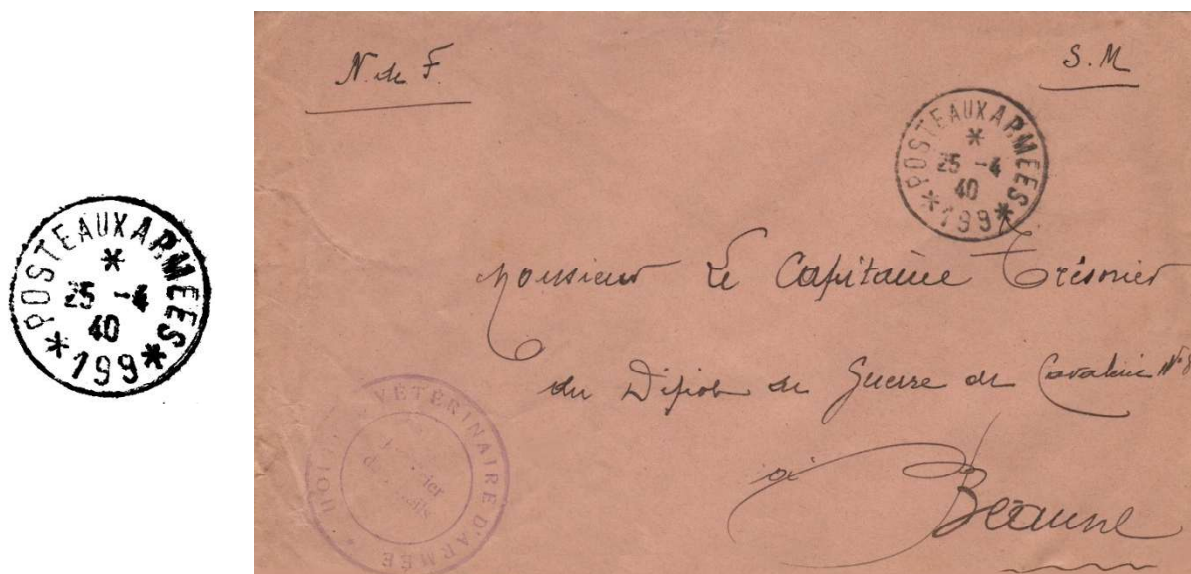 POSTE AUX ARMEES
25 -4
40
*199*
N. de F.
S.M
POSTE AUX ARMEES
25 -4
40
*199*
Monsieur Le Capitaine Trésorier
du Dépôt de Guerre de Cavalerie N°
à
Beaune
VÉTÉRINAIRE D'ARMÉE